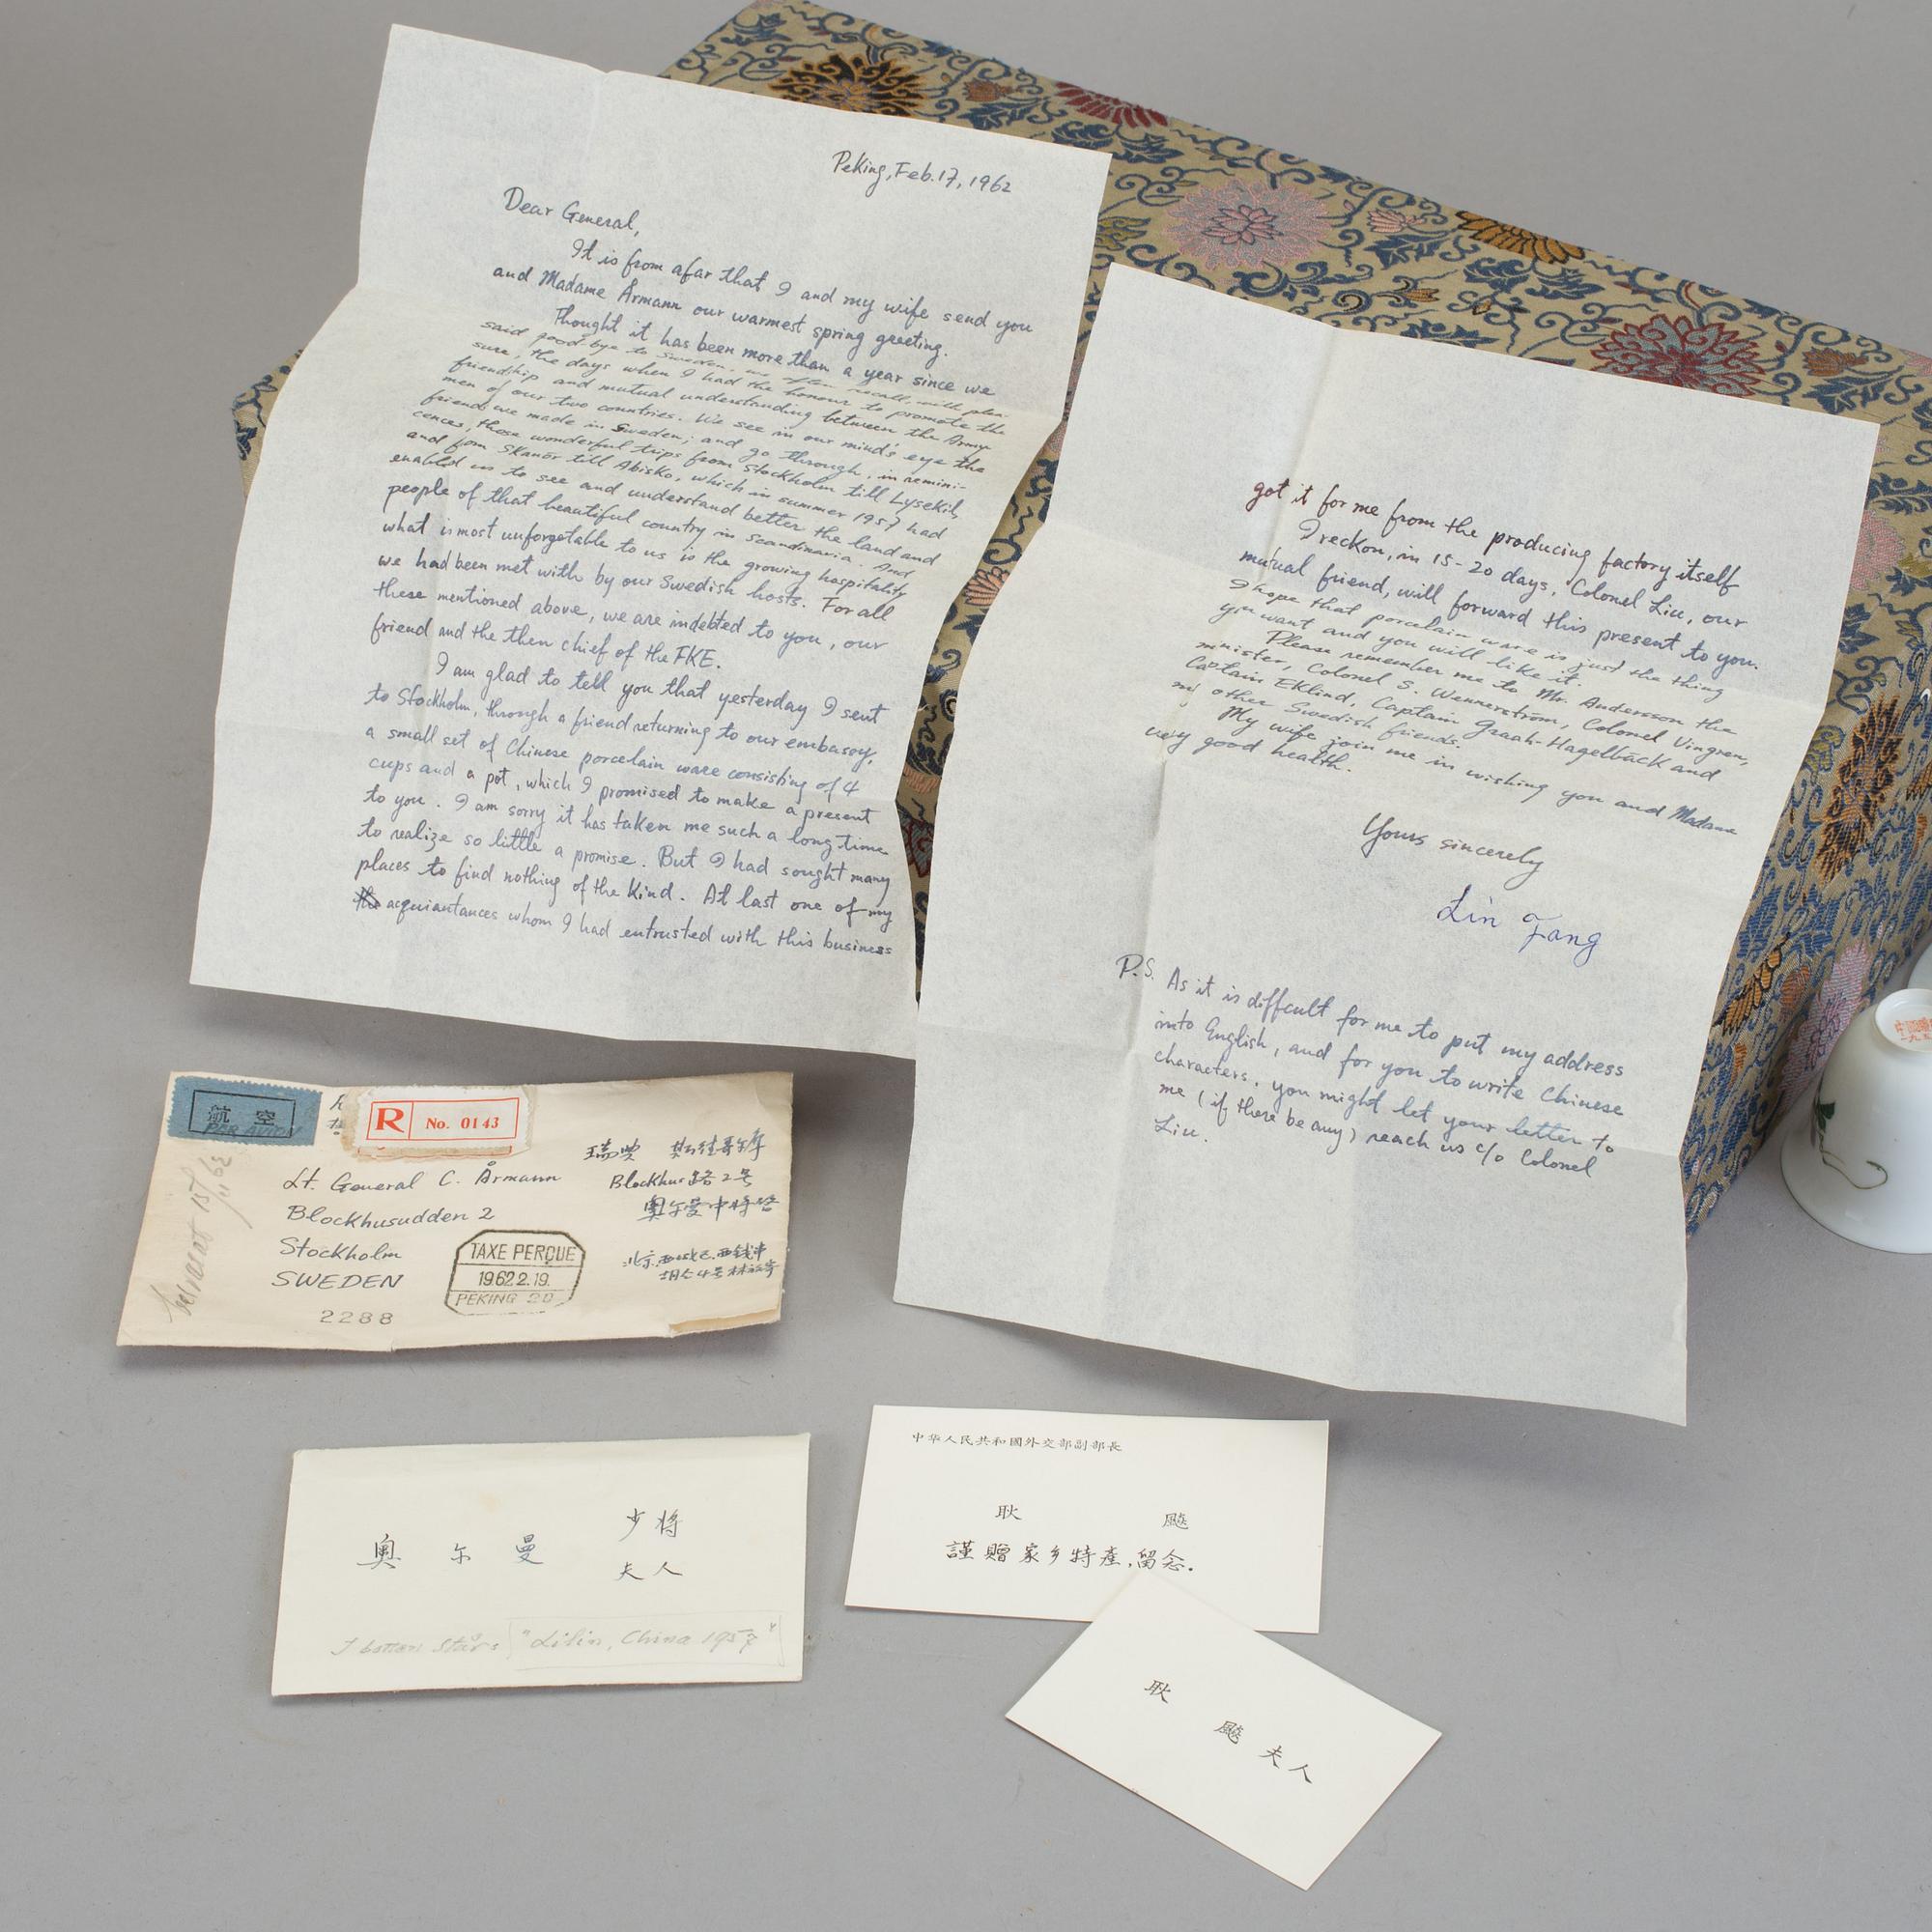 Peking, Feb. 17, 1962
Dear General,
It is from afar that I and my wife send you
and Madame Årmann our warmest spring greeting.
Thought it has been more than a year since we
said good-bye to Sweden, we often recall, with plea-
sure, the days when I had the honour to promote the
friendship and mutual understanding between the Army
men of our two countries. We see in our mind's eye the
friends we made in Sweden; and go through, in remini-
cences, those wonderful trips from Stockholm till Lysekil,
and from Skanör till Abisko, which in summer 1957 had
enabled us to see and understand better the land and
people of that beautiful country in Scandinavia. And
what is most unforgetable to us is the growing hospitality
we had been met with by our Swedish hosts. For all
these mentioned above, we are indebted to you, our
friend and the then chief of the FKE.
I am glad to tell you that yesterday I sent
to Stockholm, through a friend returning to our embassy,
a small set of Chinese porcelain ware consisting of 4
cups and a pot, which I promised to make a present
to you. I am sorry it has taken me such a long time
to realize so little a promise. But I had sought many
places to find nothing of the kind. At last one of my
acquiantances whom I had entrusted with this business
got it for me from the producing factory itself
I reckon, in 15-20 days, Colonel Liu, our
mutual friend, will forward this present to you.
I hope that porcelain ware is just the thing
you want and you will like it.
Please remember me to Mr. Andersson the
minister, Colonel S. Wennerström, Colonel Vingren,
Captain Eklind, Captain Graah-Hagelbäck and
my other Swedish friends.
My wife join me in wishing you and Madame
very good health.
Yours sincerely
Lin Fang
P.S. As it is difficult for me to put my address
into English, and for you to write Chinese
characters, you might let your letter to
me (if there be any) reach us c/o Colonel
Liu.
航空
PAR AVION
R No. 0143
Lt. General C. Årmann
Blockhusudden 2
Stockholm
SWEDEN
2288
TAXE PERÇUE
1962.2.19.
PEKING 20
瑞典 斯德哥尔摩
Blockhus路2号
奥尔曼中将启
besvarat 15/4 62
奥尔曼 少将
夫人
I botten står: "Lilin, China 1957"
中华人民共和國外交部副部長
耿 飈
謹贈家乡特產,留念.
耿 飈 夫人